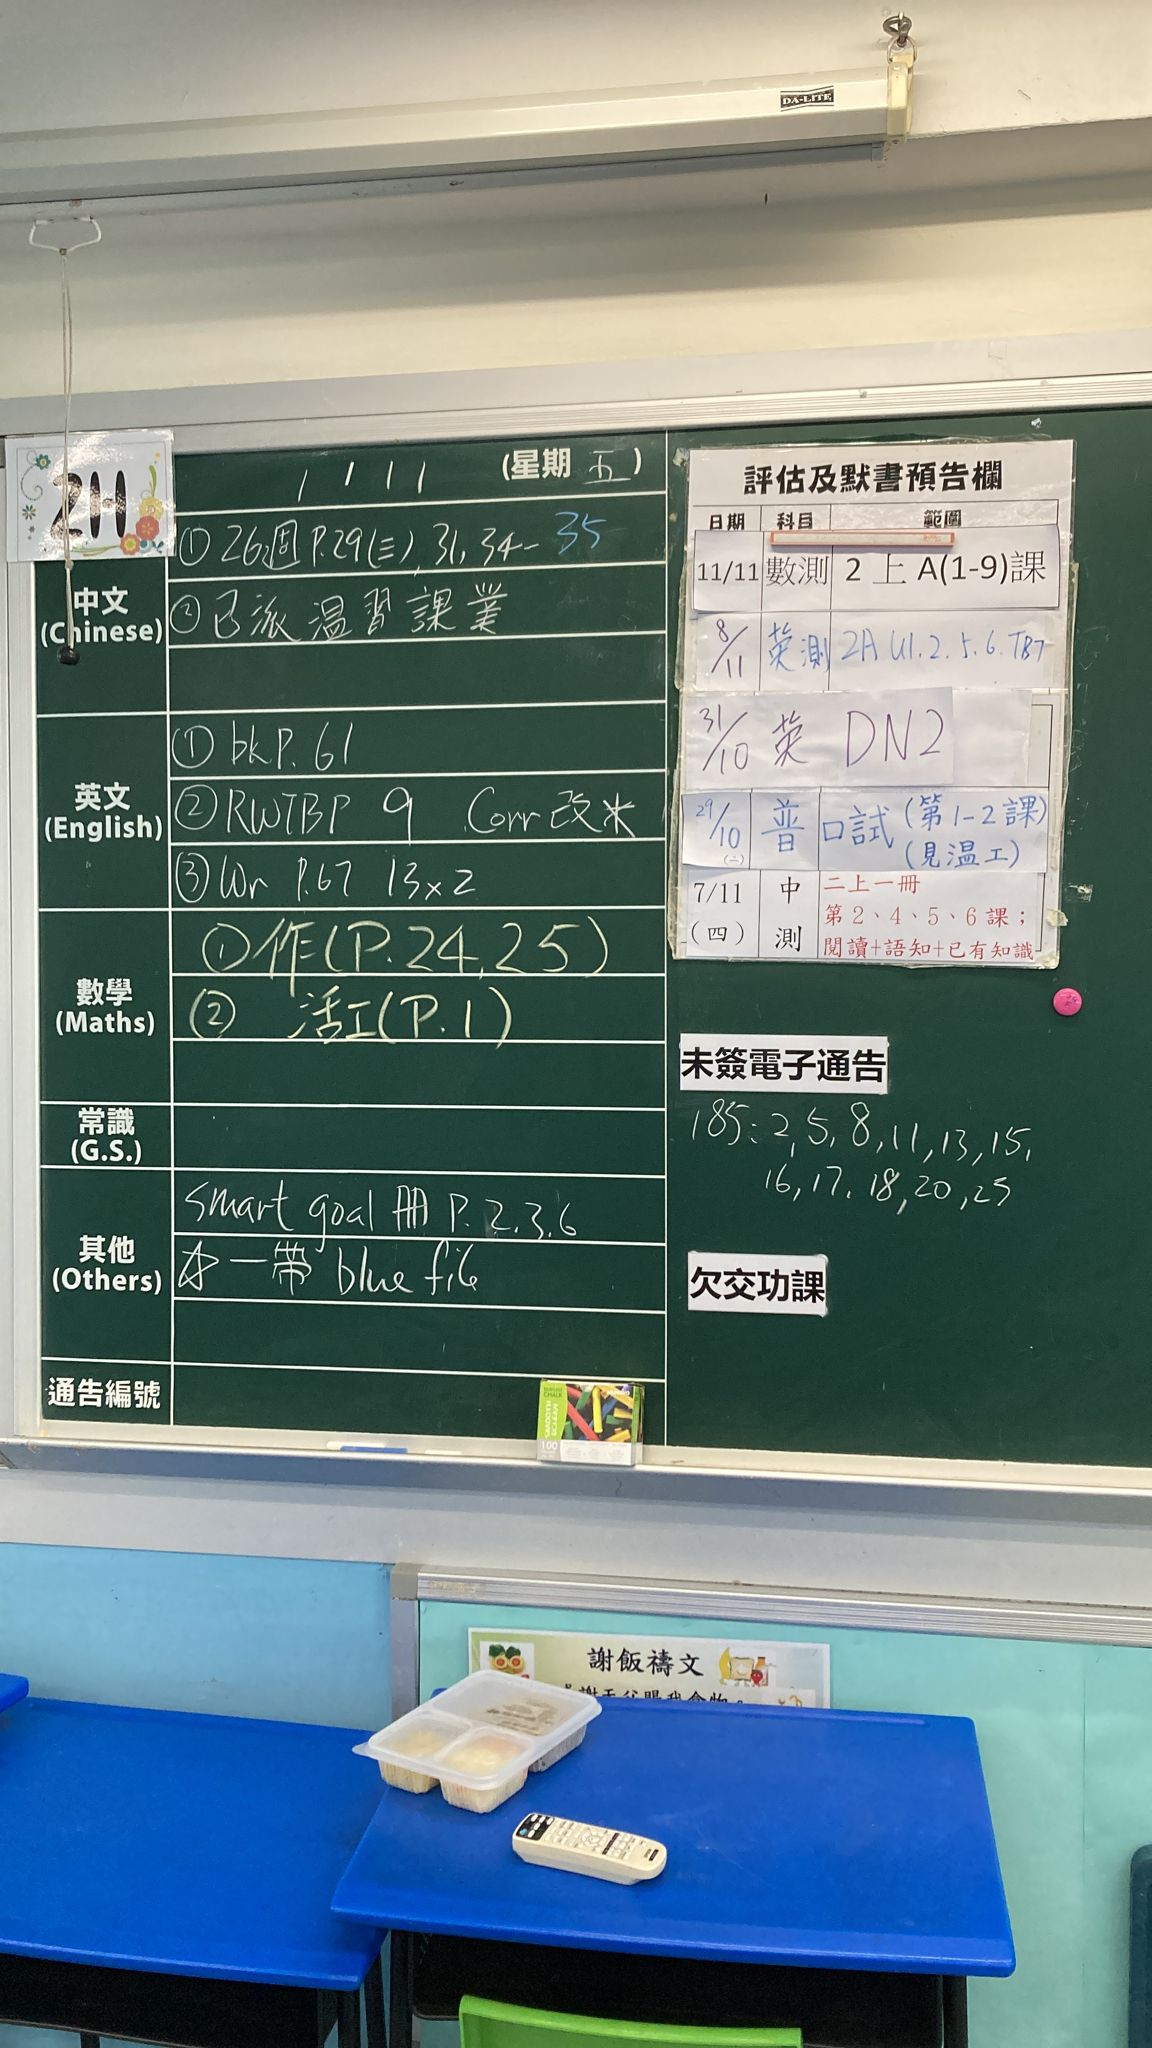 DA-LITE
2H
1/11
(星期 五)
中文
(Chinese)
① 26週 P.29(三), 31, 34-35
② 已派温習課業
英文
(English)
① bk P. 61
② RWTB P 9 Corr 改
③ Wr P.67 13x2
數學
(Maths)
① 作(P.24,25)
② 活工(P.1)
常識
(G.S.)
其他
(Others)
smart goal 冊 P. 2.3.6
☆ 一帶 blue file
通告編號
評估及默書預告欄
日期 科目 範圍
11/11 數測 2 上 A(1-9)課
8/11 英測 2A U1.2.5.6.TB7
31/10 英 DN2
29/10 (二) 普 口試 (第1-2課)
(見温工)
7/11 (四) 中測 二上一冊
第 2、4、5、6 課；
閱讀+語知+已有知識
未簽電子通告
185: 2, 5, 8, 11, 13, 15,
16, 17, 18, 20, 25
欠交功課
CHALK
100
謝飯禱文